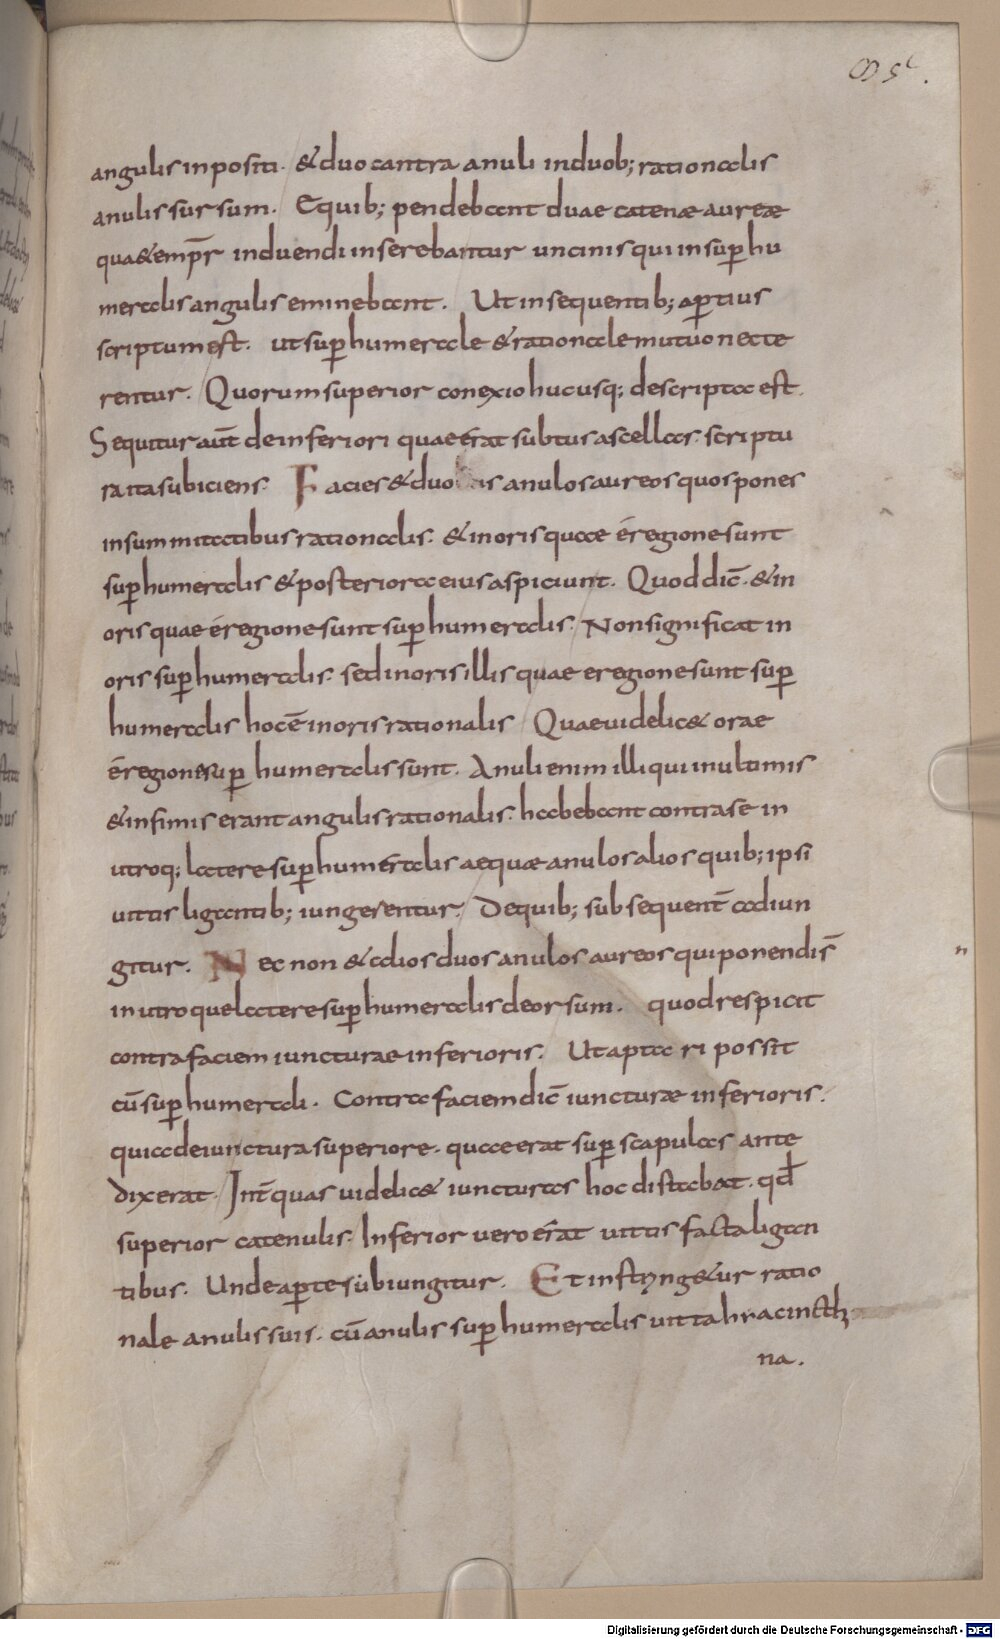 angulis inpositi. & duo contra anuli induob; rationalis
anulis sursum. Equib; pendebant duae catenæ aureæ
qua& emp̄r induendi inserebantur uncinis qui insup̄hu
meralis angulis eminebant. Ut insequentib; ap̄tius
scriptum est. ut sup̄humerale & rationale mutuo necte
rentur. Quorum superior conexio hucusq; descripta est.
Sequitur aūt deinferiori quae erat subtus ascellas. scriptu
ra ita subiciens. Facies & duos anulos aureos quos pones
insummitatibus rationalis. & inoris quae é regione sunt
sup̄humeralis & posteriora eius aspiciunt. Quod dic̄. & in
oris quae é regione sunt sup̄humeralis. Non significat in
oris sup̄humeralis. sed inoris illis quae e regione sunt sup̄
humeralis hoc ē inoris rationalis Quae uidelic& orae
é regione sup̄humeralis sunt. Anuli enim illi qui inultimis
& infimis erant angulis rationalis. habebant contra se in
utroq; latere sup̄humeralis aequæ anulos alios quib; ipsi
uittis ligantib; iungerentur. Dequib; subsequent̄ adiun
gitur. Nec non & alios duos anulos aureos qui ponendi s̄
in utroque latere sup̄humeralis deorsum. quod respicit
contra faciem iuncturae inferioris. Ut aptari possit
cū sup̄humerali. Contra faciem dic̄ iuncturæ inferioris.
quia de iunctura superiore. quae erat sup̄ scapulas ante
dixerat. Int̄ quas uidelic& iuncturas hoc distabat. qd̄
superior catenulis. Inferior uero erat uittis facta ligan
tibus. Unde ap̄te subiungitur. Et instring&ur ratio
nale anulis suis. cū anulis sup̄humeralis uitta hyacinthi
na.
n
Digitalisierung gefördert durch die Deutsche Forschungsgemeinschaft - DFG